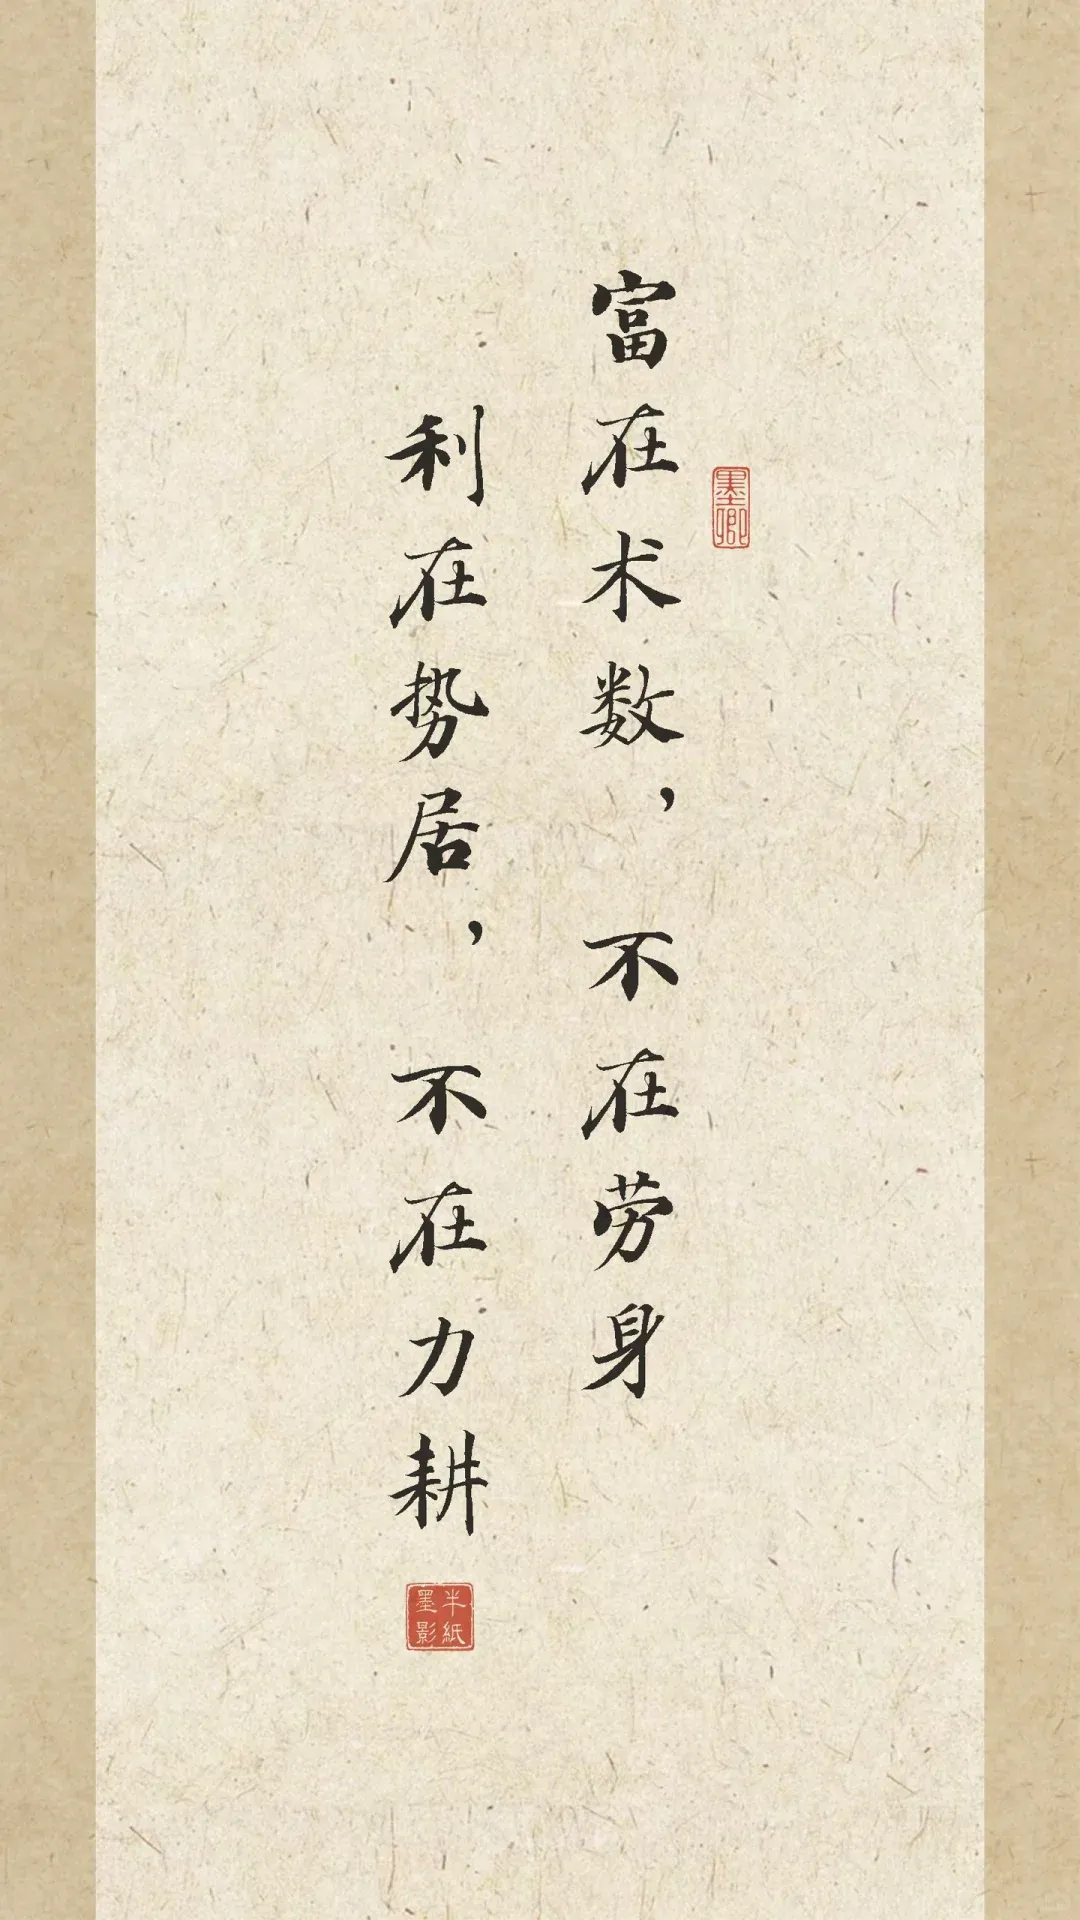 富在术数，不在劳身
利在势居，不在力耕
墨卿
半紙
墨影